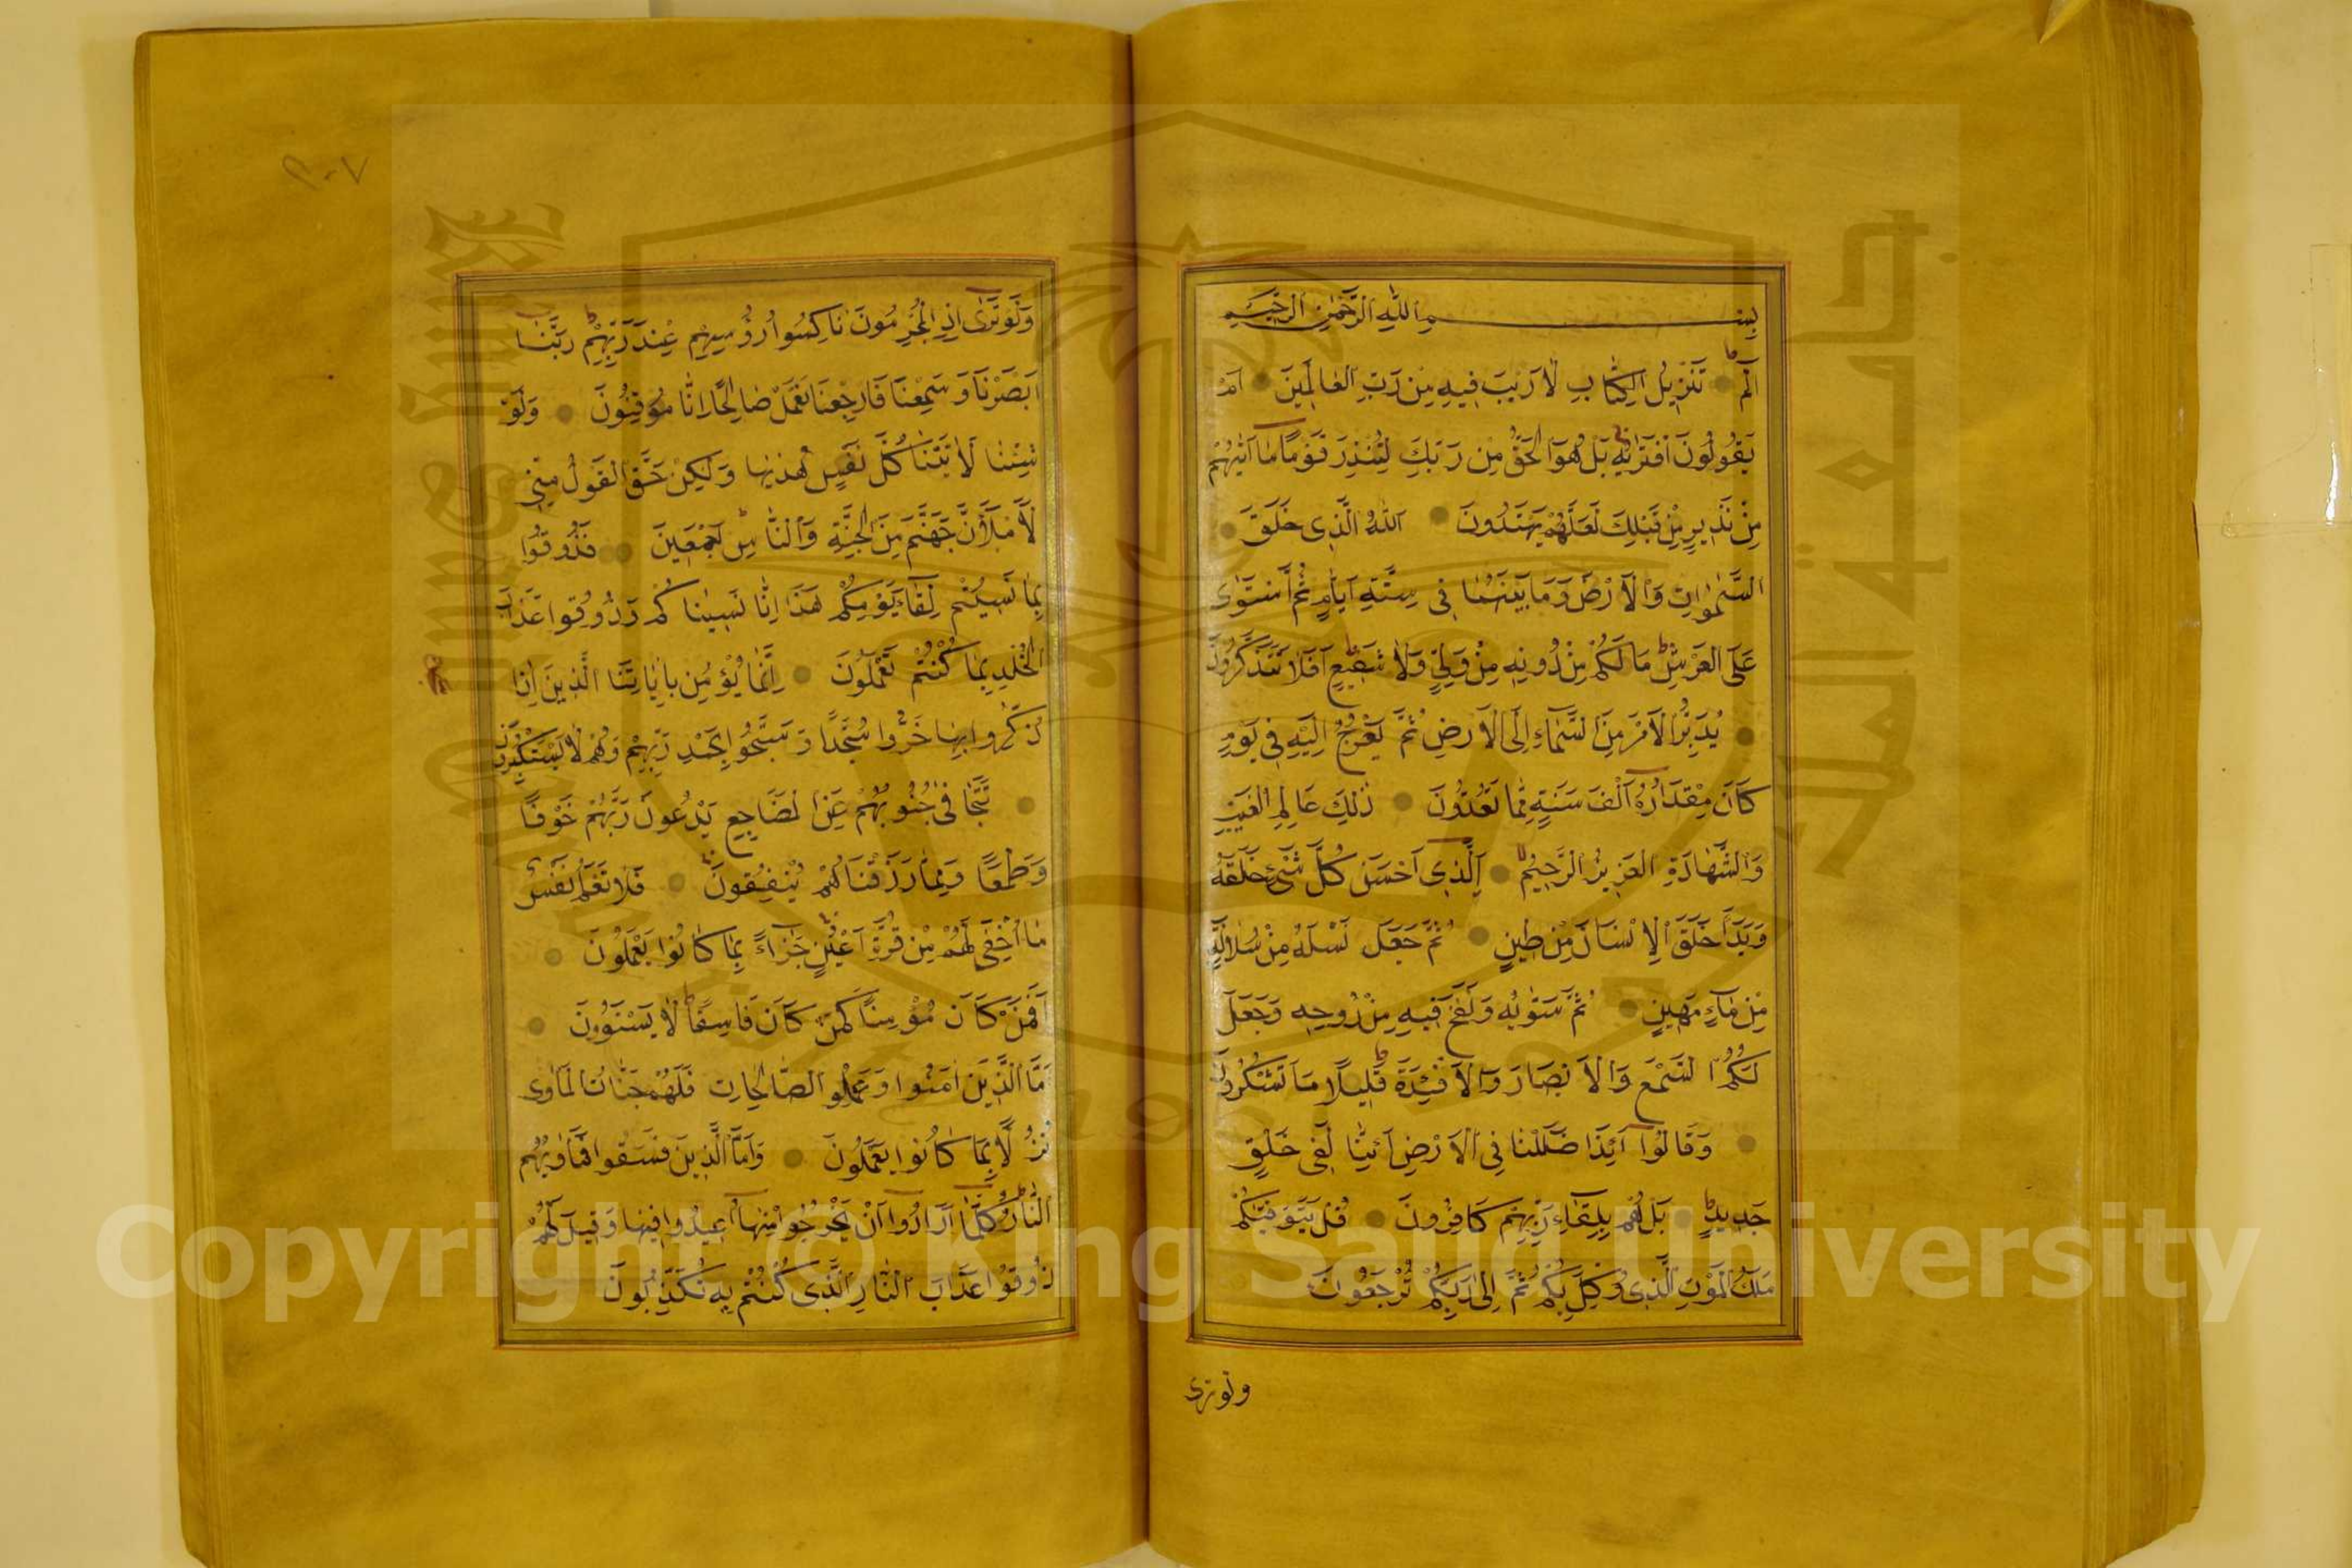 بِسْمِ اللّٰهِ الرَّحْمٰنِ الرَّحِيمِ
الٓمٓ تَنْزِيلُ الْكِتَابِ لَا رَيْبَ فِيهِ مِنْ رَبِّ الْعَالَمِينَ اَمْ
يَقُولُونَ افْتَرٰيهُ بَلْ هُوَ الْحَقُّ مِنْ رَبِّكَ لِتُنْذِرَ قَوْمًا مَا اَتٰيهُمْ
مِنْ نَذِيرٍ مِنْ قَبْلِكَ لَعَلَّهُمْ يَهْتَدُونَ اَللّٰهُ الَّذِى خَلَقَ
السَّمٰوَاتِ وَالْاَرْضَ وَمَا بَيْنَهُمَا فِى سِتَّةِ اَيَّامٍ ثُمَّ اسْتَوٰى
عَلَى الْعَرْشِ مَا لَكُمْ مِنْ دُونِهِ مِنْ وَلِىٍّ وَلَا شَفِيعٍ اَفَلَا تَتَذَكَّرُونَ
يُدَبِّرُ الْاَمْرَ مِنَ السَّمَاءِ اِلَى الْاَرْضِ ثُمَّ يَعْرُجُ اِلَيْهِ فِى يَوْمٍ
كَانَ مِقْدَارُهُ اَلْفَ سَنَةٍ مِمَّا تَعُدُّونَ ذٰلِكَ عَالِمُ الْغَيْبِ
وَالشَّهَادَةِ الْعَزِيزُ الرَّحِيمُ اَلَّذِى اَحْسَنَ كُلَّ شَىْءٍ خَلَقَهُ
وَبَدَاَ خَلْقَ الْاِنْسَانِ مِنْ طِينٍ ثُمَّ جَعَلَ نَسْلَهُ مِنْ سُلَالَةٍ
مِنْ مَاءٍ مَهِينٍ ثُمَّ سَوّٰيهُ وَنَفَخَ فِيهِ مِنْ رُوحِهِ وَجَعَلَ
لَكُمُ السَّمْعَ وَالْاَبْصَارَ وَالْاَفْئِدَةَ قَلِيلًا مَا تَشْكُرُونَ
وَقَالُوا اَئِذَا ضَلَلْنَا فِى الْاَرْضِ اَئِنَّا لَفِى خَلْقٍ
جَدِيدٍ بَلْ هُمْ بِلِقَاءِ رَبِّهِمْ كَافِرُونَ قُلْ يَتَوَفّٰيكُمْ
مَلَكُ الْمَوْتِ الَّذِى وُكِّلَ بِكُمْ ثُمَّ اِلٰى رَبِّكُمْ تُرْجَعُونَ
ولو ترى
٣٠٧
وَلَوْ تَرٰى اِذِ الْمُجْرِمُونَ نَاكِسُوا رُؤُسِهِمْ عِنْدَ رَبِّهِمْ رَبَّنَا
اَبْصَرْنَا وَسَمِعْنَا فَارْجِعْنَا نَعْمَلْ صَالِحًا اِنَّا مُوقِنُونَ وَلَوْ
شِئْنَا لَاٰتَيْنَا كُلَّ نَفْسٍ هُدٰيهَا وَلٰكِنْ حَقَّ الْقَوْلُ مِنِّى
لَاَمْلَـَٔنَّ جَهَنَّمَ مِنَ الْجِنَّةِ وَالنَّاسِ اَجْمَعِينَ فَذُوقُوا
بِمَا نَسِيتُمْ لِقَاءَ يَوْمِكُمْ هٰذَا اِنَّا نَسِينَاكُمْ وَذُوقُوا عَذَابَ
الْخُلْدِ بِمَا كُنْتُمْ تَعْمَلُونَ اِنَّمَا يُؤْمِنُ بِاٰيَاتِنَا الَّذِينَ اِذَا
ذُكِّرُوا بِهَا خَرُّوا سُجَّدًا وَسَبَّحُوا بِحَمْدِ رَبِّهِمْ وَهُمْ لَا يَسْتَكْبِرُونَ
تَتَجَافٰى جُنُوبُهُمْ عَنِ الْمَضَاجِعِ يَدْعُونَ رَبَّهُمْ خَوْفًا
وَطَمَعًا وَمِمَّا رَزَقْنَاهُمْ يُنْفِقُونَ فَلَا تَعْلَمُ نَفْسٌ
مَا اُخْفِىَ لَهُمْ مِنْ قُرَّةِ اَعْيُنٍ جَزَاءً بِمَا كَانُوا يَعْمَلُونَ
اَفَمَنْ كَانَ مُؤْمِنًا كَمَنْ كَانَ فَاسِقًا لَا يَسْتَوُونَ
اَمَّا الَّذِينَ اٰمَنُوا وَعَمِلُوا الصَّالِحَاتِ فَلَهُمْ جَنَّاتُ الْمَاْوٰى
نُزُلًا بِمَا كَانُوا يَعْمَلُونَ وَاَمَّا الَّذِينَ فَسَقُوا فَمَاْوٰيهُمُ
النَّارُ كُلَّمَا اَرَادُوا اَنْ يَخْرُجُوا مِنْهَا اُعِيدُوا فِيهَا وَقِيلَ لَهُمْ
ذُوقُوا عَذَابَ النَّارِ الَّذِى كُنْتُمْ بِهِ تُكَذِّبُونَ
Copyright © King Saud University